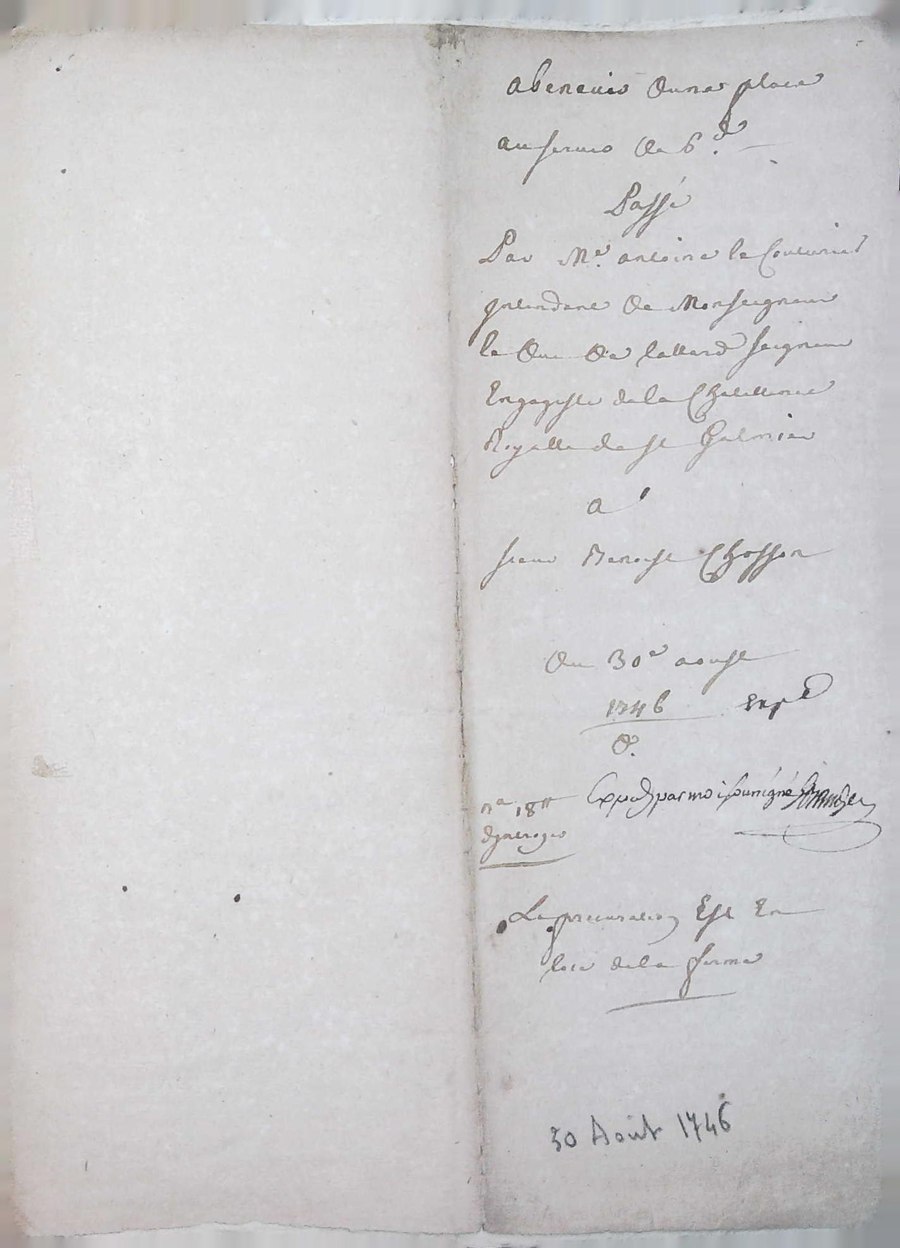 abeneuis dune place
au servis de 6.d
Passé
Par Me. antoine le Couturier
jntendant de Monseigneur
le duc de tallard seigneur
Engagiste de la Chatellenie
Royalle de st Galmier
a
sieur Benoist Chosson
du 30e aoust
1746 Expé
d.
18
par moi soussigné
La procuration Est En
de la ferme
30 Août 1746